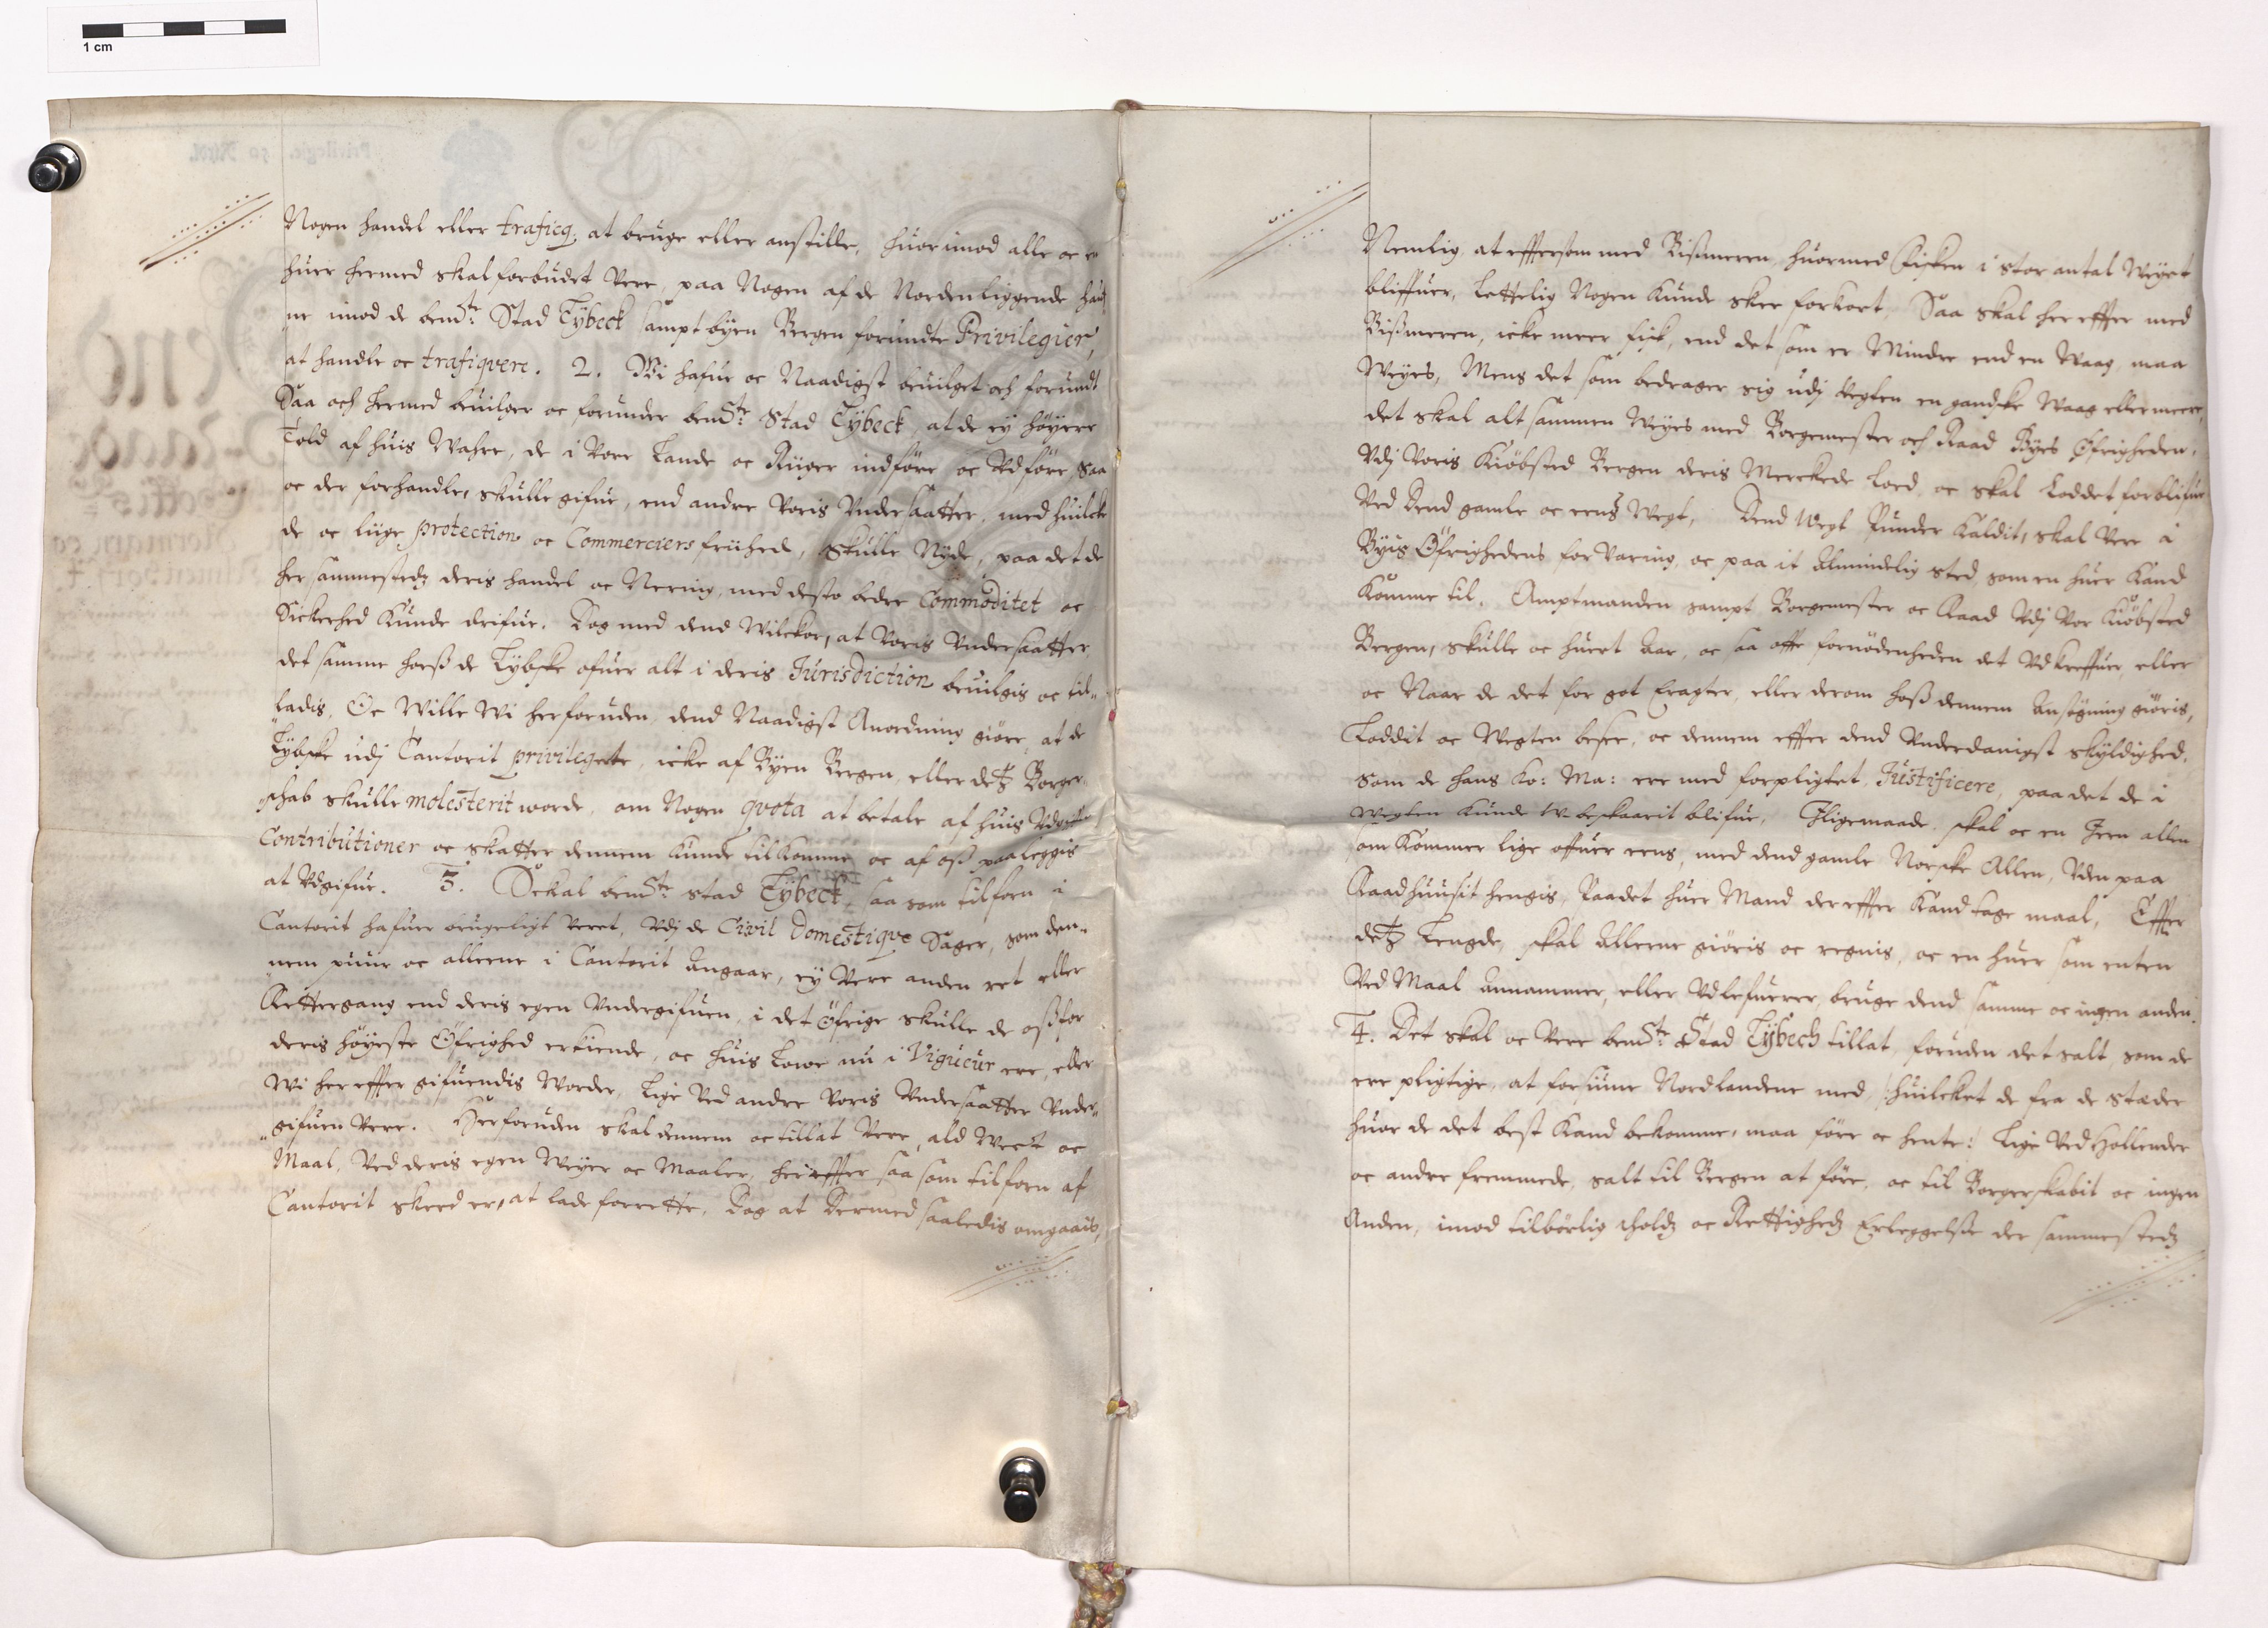 1 cm
Nogen handel eller traficq, at bruge eller anstille, huorimod alle oc en
huer hermed skal forbudet vere, paa Nogen af de Nordenliggende haf
ne imod de bem.te Stad Lybeck sampt byen Bergen forundte Privilegier,
at handle oc trafiqvere. 2. Wi hafue oc Naadigst beuilget och forundt
Saa och hermed beuilger oc forunder bem.te Stad Lybeck, at de ey høyere
Told af huis Wahre, de i vore Lande oc Riiger indføre oc Vdføre, saa
oc der forhandle, skulle gifue, end andre Voris Vndersaatter, med huilcke
de oc liige protection oc Commerciers friihed, skulle Nyde, paa det de
her sammestedz deris handel oc Nering, med desto bedre Commoditet oc
Sickerhed Kunde drifue. Dog med dend Wilckor, at Voris Vndersaatter
det samme hoeß de Lybske ofuer alt i deris Jurisdiction beuilgis oc til-
ladis, Oc Wille Wi herforuden, dend Naadigst Anordning giøre, at de
Lybske udj Cantorit privilegerte, icke af Byen Bergen, eller detz Borger-
schab skulle molesterit worde, om Nogen qvota at betale af huis
Contributioner oc skatter dennem kunde tilkomme, oc af oß paaleggis
at Vdgifue. 3. Skal bem.te stad Lybeck, saa som tilforn i
Cantorit hafuer brugeligt veret, Vdj de Civil Domestiqve Sager, som den-
nem puur oc alleene i Cantorit Angaar, ey Vere anden ret eller
Rettergang end deris egen Vndergifuen, i det Øfrige skulle de oß for
deris høyeste Øfrighed erkiende, oc huis Lowe nu i Vigueur ere, eller
Wi her effter gifuendis Worder, Lige Ved andre Voris Vndersaatter Vnder-
gifuen Vere. Herforuden skal dennem oc tillat Vere, ald Weet oc
Maal, Ved deris egen Weyer oc Maaler, hereffter saa som tilforn af
Cantorit skeed er, at lade forrette, Dog at Dermed saaledis omgaais,
Nemlig at effttersom med Bißmeren, huormed fisken i stor antal Weyet
bliffuer, Lettelig Nogen Kunde skee forkort, Saa skal her effter med
Bißmeren, icke meer fisk, end det som er Mindre end en Waag, maa
Weyes, Mens det som bedrager sig udj Vegten en gandske Waag eller meere,
det skal alt sammen Weyes med Borgemester och Raad Byes Øfrigheden,
Vdj Voris Kiøbsted Bergen deris Merckede Loed, oc skal Loddet forblifue
Ved Dend gamle oc eens Wegt, Dend Wegt Punder Kaldit, skal Vere i
Byis Øfrighedens forvaring, oc paa it Almindelig sted, som en huer Kand
Komme til, Amptmanden sampt Borgemester oc Raad Vdj Vor Kiøbsted
Bergen, skulle oc huert Aar, oc saa offte fornødenheden det Vdkreffuer, eller
oc Naar de det for got Eragter, eller derom hoß dennem Ansøgning giøris,
Loddit oc Wegten besee, oc dennem effter dend Vnderdanigst skyldighed,
som de hans Ko: Ma: ere med forpligtet, Justificere, paa det de i
Wegten Kunde Vbeskaarit blifue, Jligemaade skal oc en Jern allen
som Kommer lige offuer eens, med dend gamle Norske Allen, Vden paa
Raadhuusit hengis, Paadet huer Mand dereffter Kand tage maal, Effter
detz Lengde, skal Allerne giøris oc regnis, oc en huer som enten
Ved Maal Annammer, eller Vdlefuerer, bruge dend samme oc ingen anden.
4. Det skal oc Vere bem.te Stad Lybech tillat, foruden det salt, som de
ere pligtige, at forsiune Nordlandene med, :huilcket de fra de stæder
huor de det best Kand bekomme, maa føre oc hente: Lige Ved Hollender
oc andre fremmede, salt til Bergen at føre, oc til Borgerskabit oc ingen
Anden, imod tilbørlig tholdz oc Rettighedz Erleggelße der sammestedz